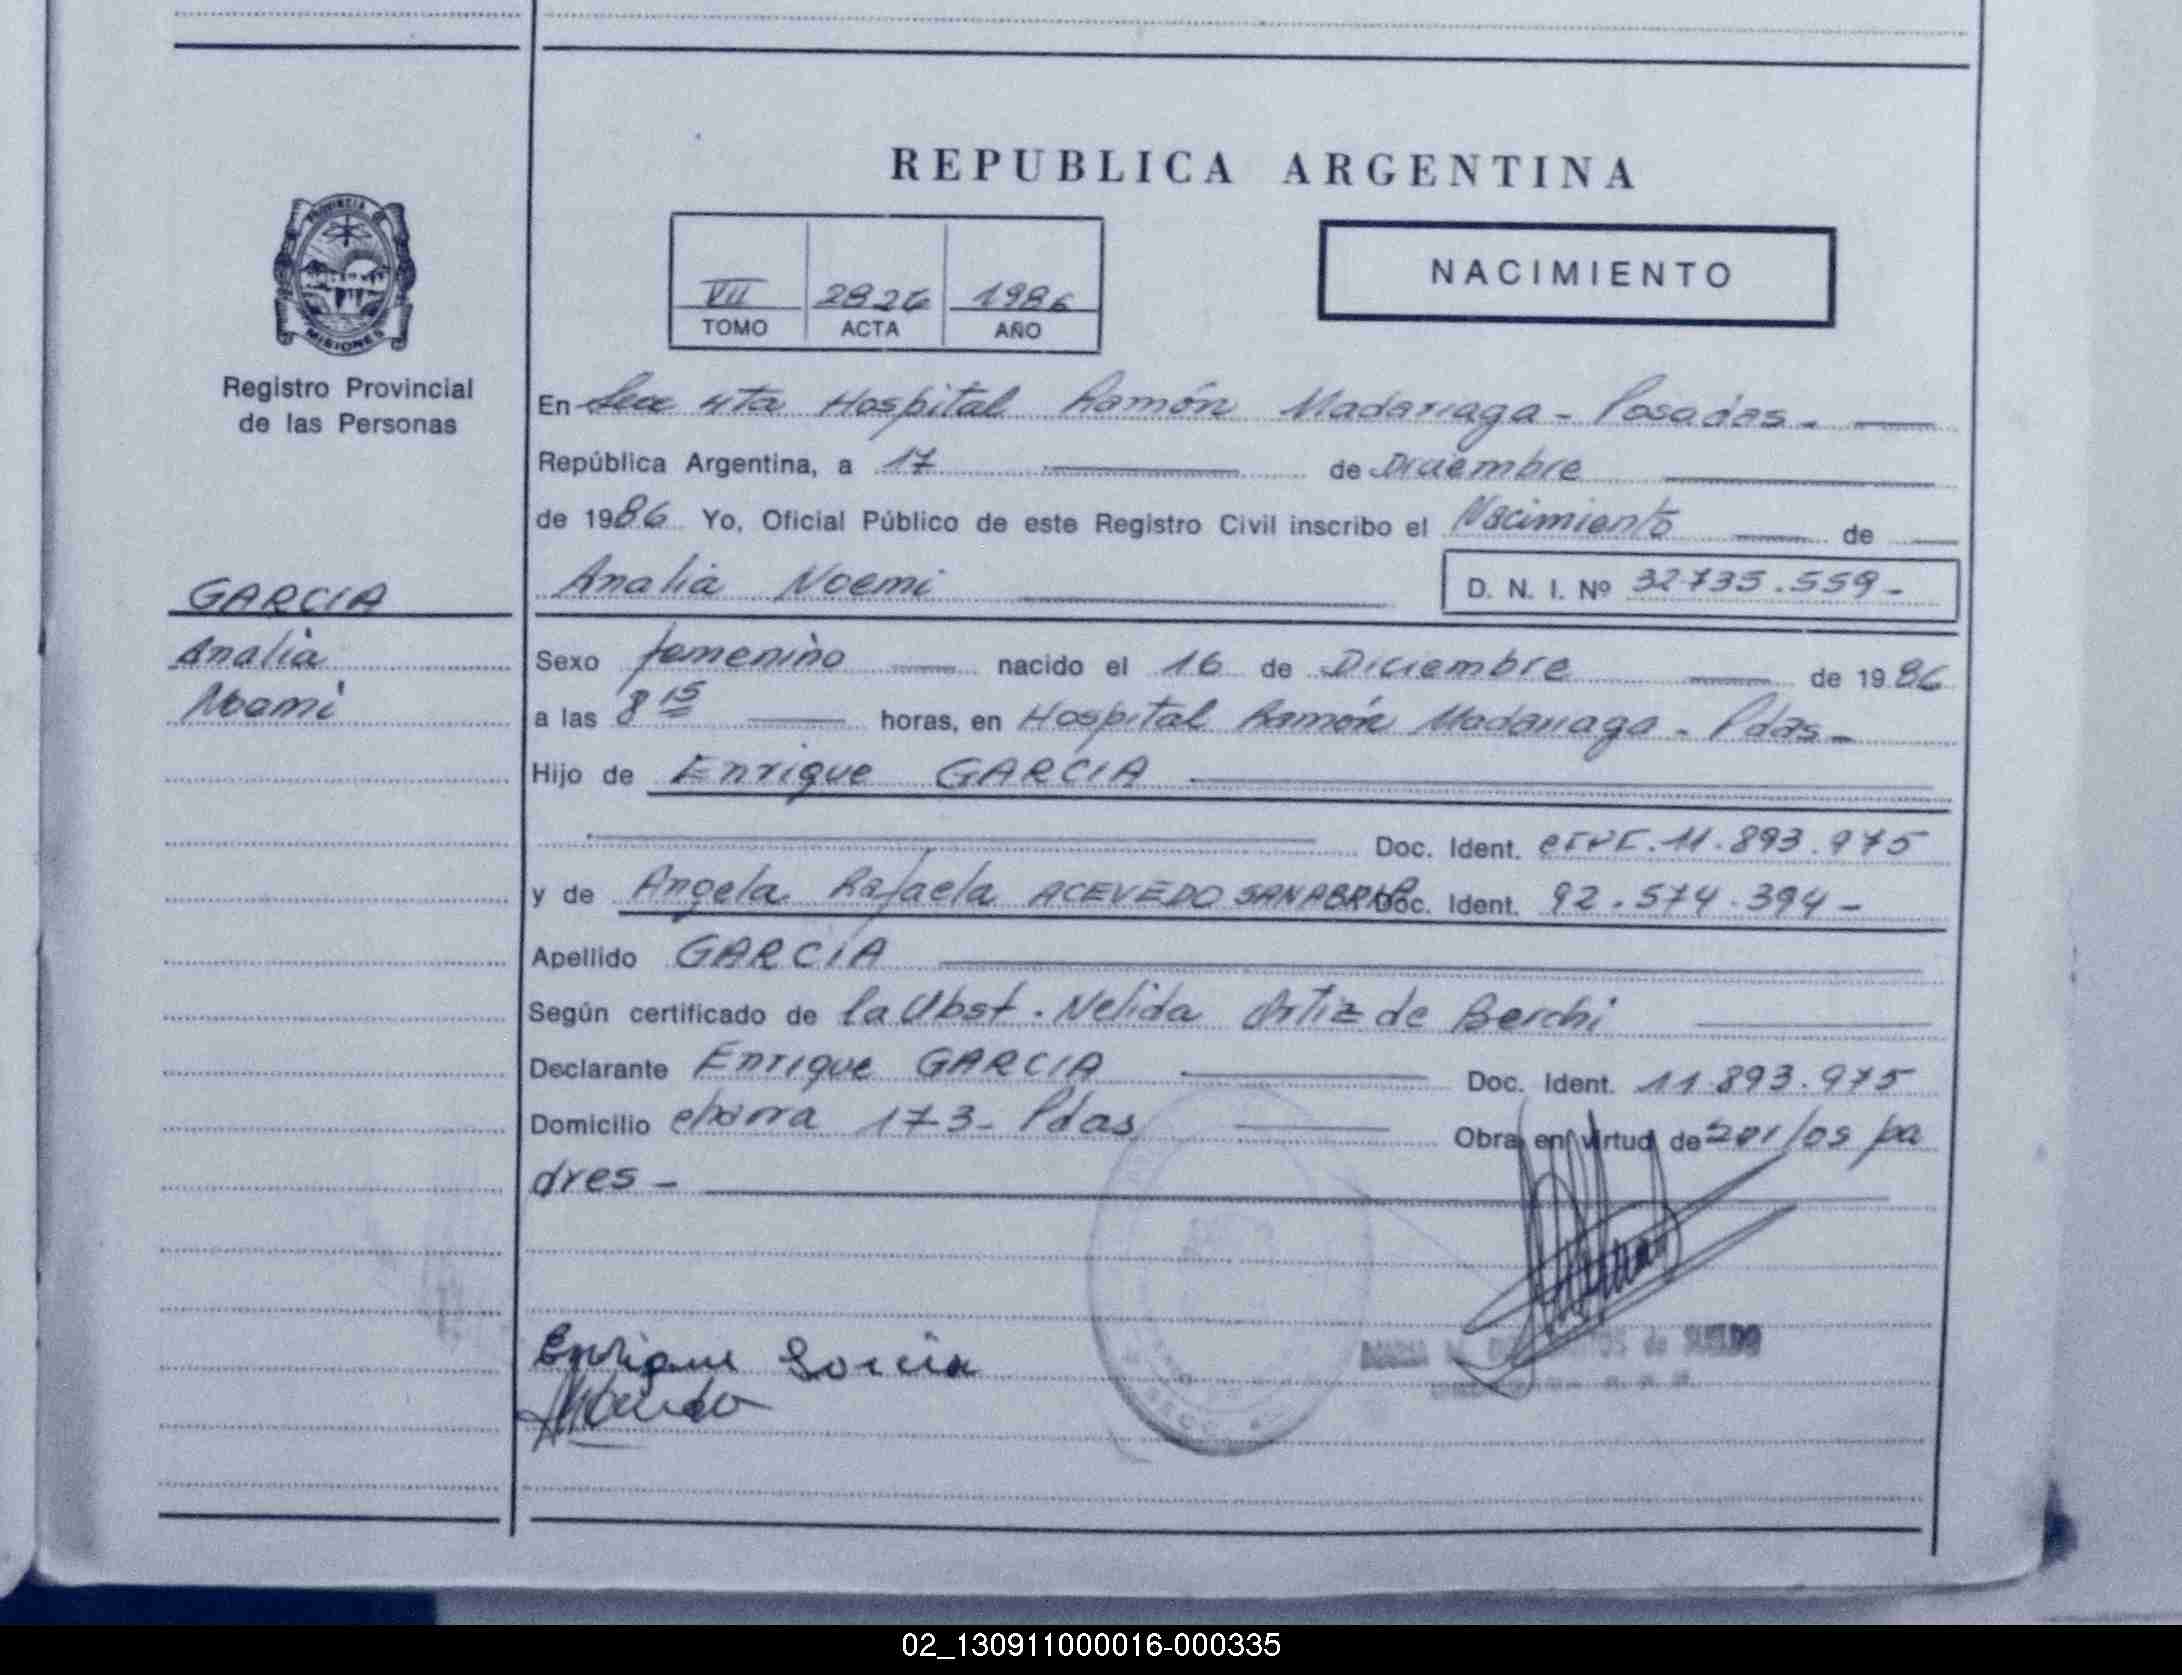 REPUBLICA ARGENTINA
PROVINCIA DE
MISIONES
Registro Provincial
de las Personas
VII 2826 1986
TOMO ACTA AÑO
NACIMIENTO
En Secc 4ta Hospital Ramón Madariaga - Posadas -
República Argentina, a 17 de Diciembre
de 1986 Yo, Oficial Público de este Registro Civil inscribo el Nacimiento de
Analia Noemi D. N. I. Nº 32735.559-
GARCIA
Analia
Noemi
Sexo femenino nacido el 16 de Diciembre de 1986
a las 8 15 horas, en Hospital Ramón Madariaga - Pdas -
Hijo de Enrique GARCIA
Doc. Ident. 11.893.975
y de Angela Rafaela ACEVEDO SANABRIA Doc. Ident. 92.574.394-
Apellido GARCIA
Según certificado de la Obst. Nelida Ortiz de Berchi
Declarante Enrique GARCIA Doc. Ident. 11.893.975
Domicilio chacra 173- Pdas Obra en virtud de ser los pa
dres -
Enrique Garcia
de SUELDO
02_130911000016-000335